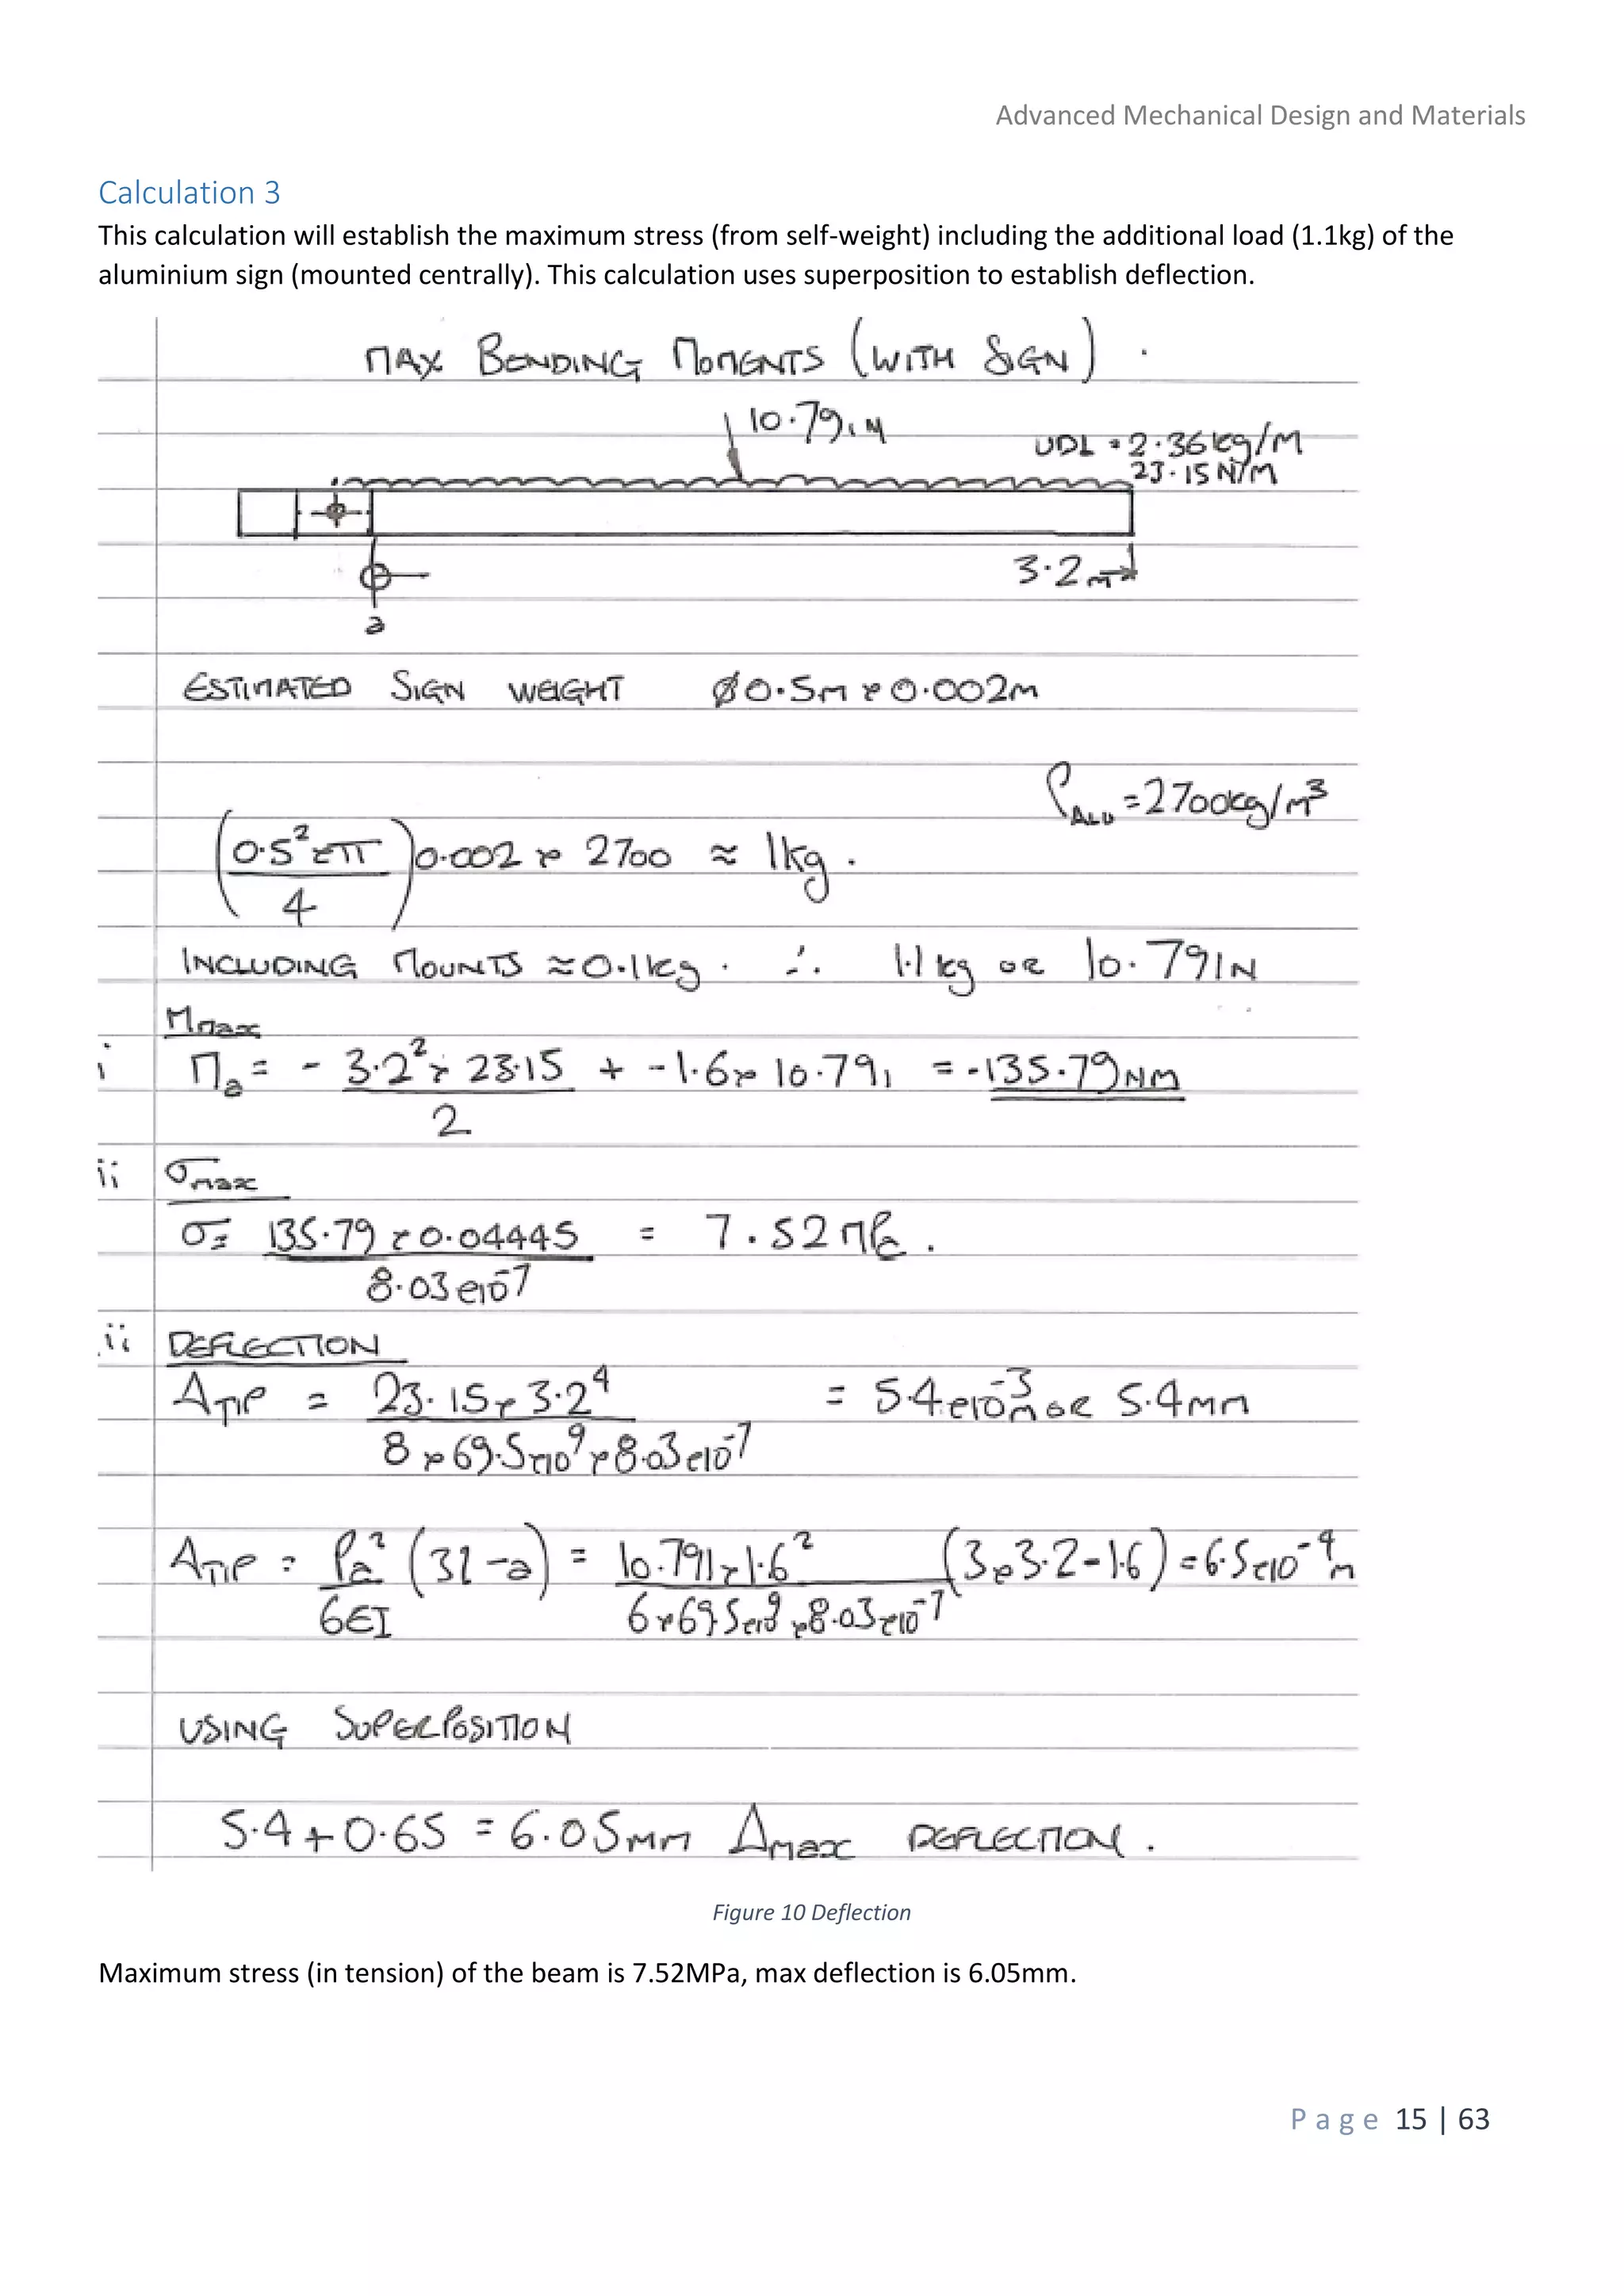 Advanced Mechanical Design and Materials
Calculation 3
This calculation will establish the maximum stress (from self-weight) including the additional load (1.1kg) of the
aluminium sign (mounted centrally). This calculation uses superposition to establish deflection.
MAX BENDING MOMENTS (WITH SIGN).
10.791N
UDL = 2.36kg/M
23.15N/M
3.2m
a
ESTIMATED SIGN WEIGHT Ø0.5m x 0.002m
ρALU = 2700kg/m³
(0.5² x π / 4) 0.002 x 2700 ≈ 1kg.
INCLUDING MOUNTS ≈ 0.1kg. ∴ 1.1kg OR 10.791N
Mmax
i Ma = - 3.2² x 23.15 / 2 + -1.6 x 10.791 = -135.79NM
ii σmax
σ = 135.79 x 0.04445 / 8.03x10⁻⁷ = 7.52MPa.
ii DEFLECTION
ΔTIP = 23.15 x 3.2⁴ / 8 x 69.5x10⁹ x 8.03x10⁻⁷ = 5.4x10⁻³m OR 5.4mm
ΔTIP = Pa² / 6EI (3l - a) = 10.791 x 1.6² / 6 x 69.5x10⁹ x 8.03x10⁻⁷ (3x3.2-1.6) = 6.5x10⁻⁴m
USING SUPERPOSITION
5.4 + 0.65 = 6.05mm Δmax DEFLECTION.
Figure 10 Deflection
Maximum stress (in tension) of the beam is 7.52MPa, max deflection is 6.05mm.
Page 15 | 63